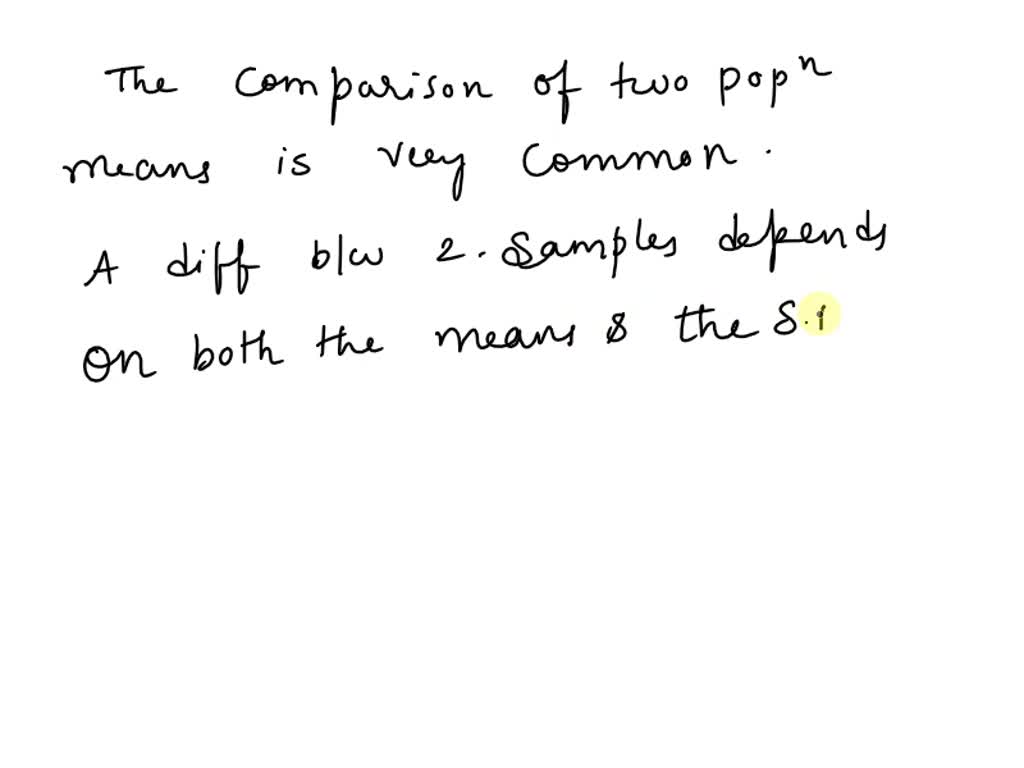 The comparison of two popⁿ
means is very common.
A diff b/w 2. Samples depends
on both the means & the